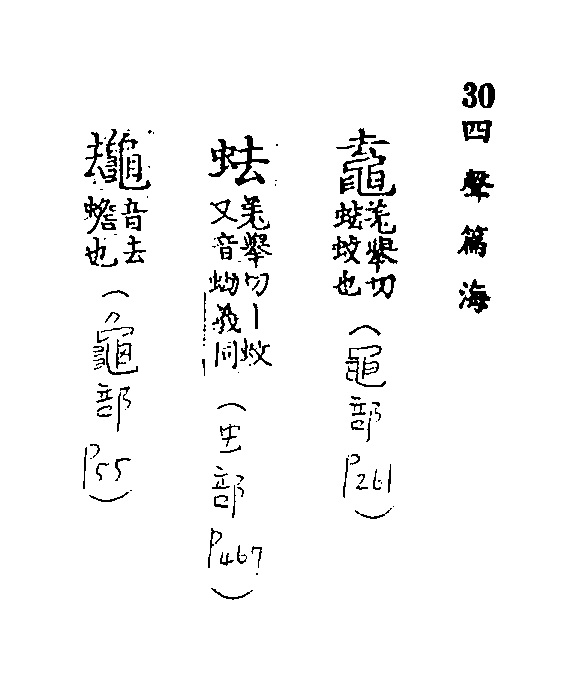 30 四聲篇海
𪓹 羌舉切蚨蚥也(黽部P261)
蚨 羌舉切丨蚥又音蚴義同(虫部P467)
音去蟾也(龜部P55)